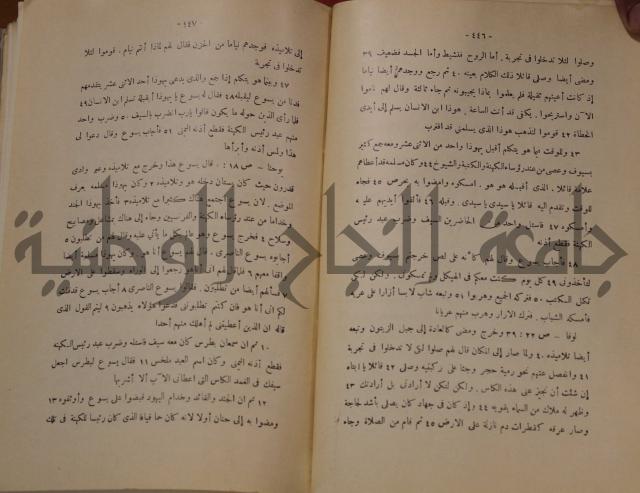 - ٤٤٦ -
وصلوا لئلا تدخلوا فى تجربة . أما الروح فنشيط وأما الجسد فضعيف ٣٩
ومضى أيضا وصلى قائلا ذلك الكلام بعينه ٤٠ ثم رجع ووجدهم أيضا نياما
إذ كانت أعينهم ثقيلة فلم يعلموا بماذا يجيبونه ثم جاء ثالثة وقال لهم ناموا
الآن واستريحوا . يكفى قد أتت الساعة . هوذا ابن الانسان يسلم إلى أيدى
الخطاة ٤٢ قوموا لنذهب هوذا الذى يسلمنى قد اقترب
٤٣ وللوقت فيما هو يتكلم أقبل يهوذا واحد من الاثنى عشر ومعه جمع كثير
بسيوف وعصى من عند رؤساء الكهنة والكتبة والشيوخ ٤٤ وكان مسلمه قد أعطاهم
علامة قائلا . الذى أقبله هو هو . امسكوه وامضوا به بحرص ٤٥ فجاء
للوقت وتقدم اليه قائلا يا سيدى يا سيدى . وقبله ٤٦ فألقوا أيديهم عليه
وأمسكوه ٤٧ فاستل واحد من الحاضرين السيف وضرب عبد رئيس
الكهنة فقطع أذنه
٤٨ فأجاب يسوع وقال لهم كأنه على لص خرجتم بسيوف وعصى
لتأخذونى ٤٩ كل يوم كنت معكم فى الهيكل ولم تمسكونى . ولكن لكى
تكمل الكتب ٥٠ فتركه الجميع وهربوا ٥١ وتبعه شاب لابسا أزارا على عريه
فأمسكه الشبان . فترك الازار وهرب منهم عريانا
لوقا – ص ٢٢ : ٣٩ وخرج ومضى كالعادة إلى جبل الزيتون وتبعه
أيضا تلاميذه ٤٠ ولما صار إلى المكان قال لهم صلوا لكى لا تدخلوا فى تجربة
٤١ وانفصل عنهم نحو رمية حجر وجثا على ركبتيه وصلى ٤٢ قائلا يا ابتاه
إن شئت أن تجيز عنى هذه الكأس . ولكن لتكن لا أرادتى بل أرادتك ٤٣
وظهر له ملاك من السماء يقويه ٤٤ وإذ كان فى جهاد كان يصلى بأشد لجاجة
وصار عرقه كقطرات دم نازلة على الارض ٤٥ ثم قام من الصلاة وجاء
٤٤٧ -
إلى تلاميذه فوجدهم نياما من الحزن فقال لهم لماذا أنتم نيام . قوموا لئلا
تدخلوا فى تجربة
٤٧ وبينما هو يتكلم إذا جمع والذى يدعى يهوذا أحد الاثنى عشر يتقدمهم
فدنا من يسوع ليقبله ٤٨ فقال له يسوع يا يهوذا أبقبلة تسلم ابن الانسان ٤٩
فلما رأى الذين حوله ما يكون قالوا يارب انضرب بالسيف ٥٠ وضرب واحد
منهم عبد رئيس الكهنة فقطع أذنه اليمنى ٥١ فأجاب يسوع وقال دعوا لى
هذا ولمس أذنه وأبرأها
يوحنا – ص ١٨ : قال يسوع هذا وخرج مع تلاميذه وعبر وادى
قدرون حيث كان بستان دخله هو وتلاميذه ٢ وكان يهوذا مسلمه يعرف
الموضع . لان يسوع اجتمع هناك كثيرا مع تلاميذه ٣ فأخذ يهوذا الجند
وخداما من عند رؤساء الكهنة والفريسيين وجاء إلى هناك بمشاعل ومصابيح
وسلاح ٤ فخرج يسوع وهو عالم بكل ما يأتى عليه وقال لهم من تطلبون ٥
أجابوه يسوع الناصرى . قال لهم يسوع أنا هو . وكان يهوذا مسلمه أيضا
واقفا معهم ٦ فلما قال لهم انى أنا هو رجعوا إلى الوراء وسقطوا على الارض
٧ فسألهم أيضا من تطلبون . فقالوا يسوع الناصرى ٨ أجاب يسوع قد قلت
لكم انى أنا هو فان كنتم تطلبونى فدعوا هؤلاء يذهبون ٩ ليتم القول الذى
قاله ان الذين أعطيتنى لم أهلك منهم أحدا
١٠ ثم ان سمعان بطرس كان معه سيف فاستله وضرب عبد رئيس الكهنة
فقطع أذنه اليمنى وكان اسم العبد ملخس ١١ فقال يسوع لبطرس اجعل
سيفك فى الغمد الكأس التى أعطانى الآب ألا أشربها
١٢ ثم ان الجند والقائد وخدام اليهود قبضوا على يسوع وأوثقوه ١٣
ومضوا به إلى حنان أولا لانه كان حما قيافا الذى كان رئيسا للكهنة فى تلك
جامعة النجاح الوطنية